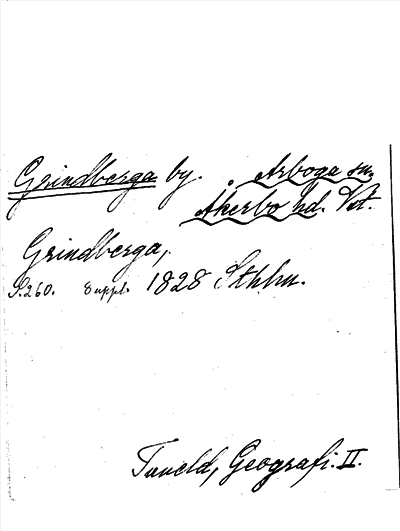 Grindberga by. Arboga sn.
Åkerbo hd. Vstm.
Grindberga,
S. 260. Suppl. 1828 Sthlm.
Tuneld, Geografi. II.